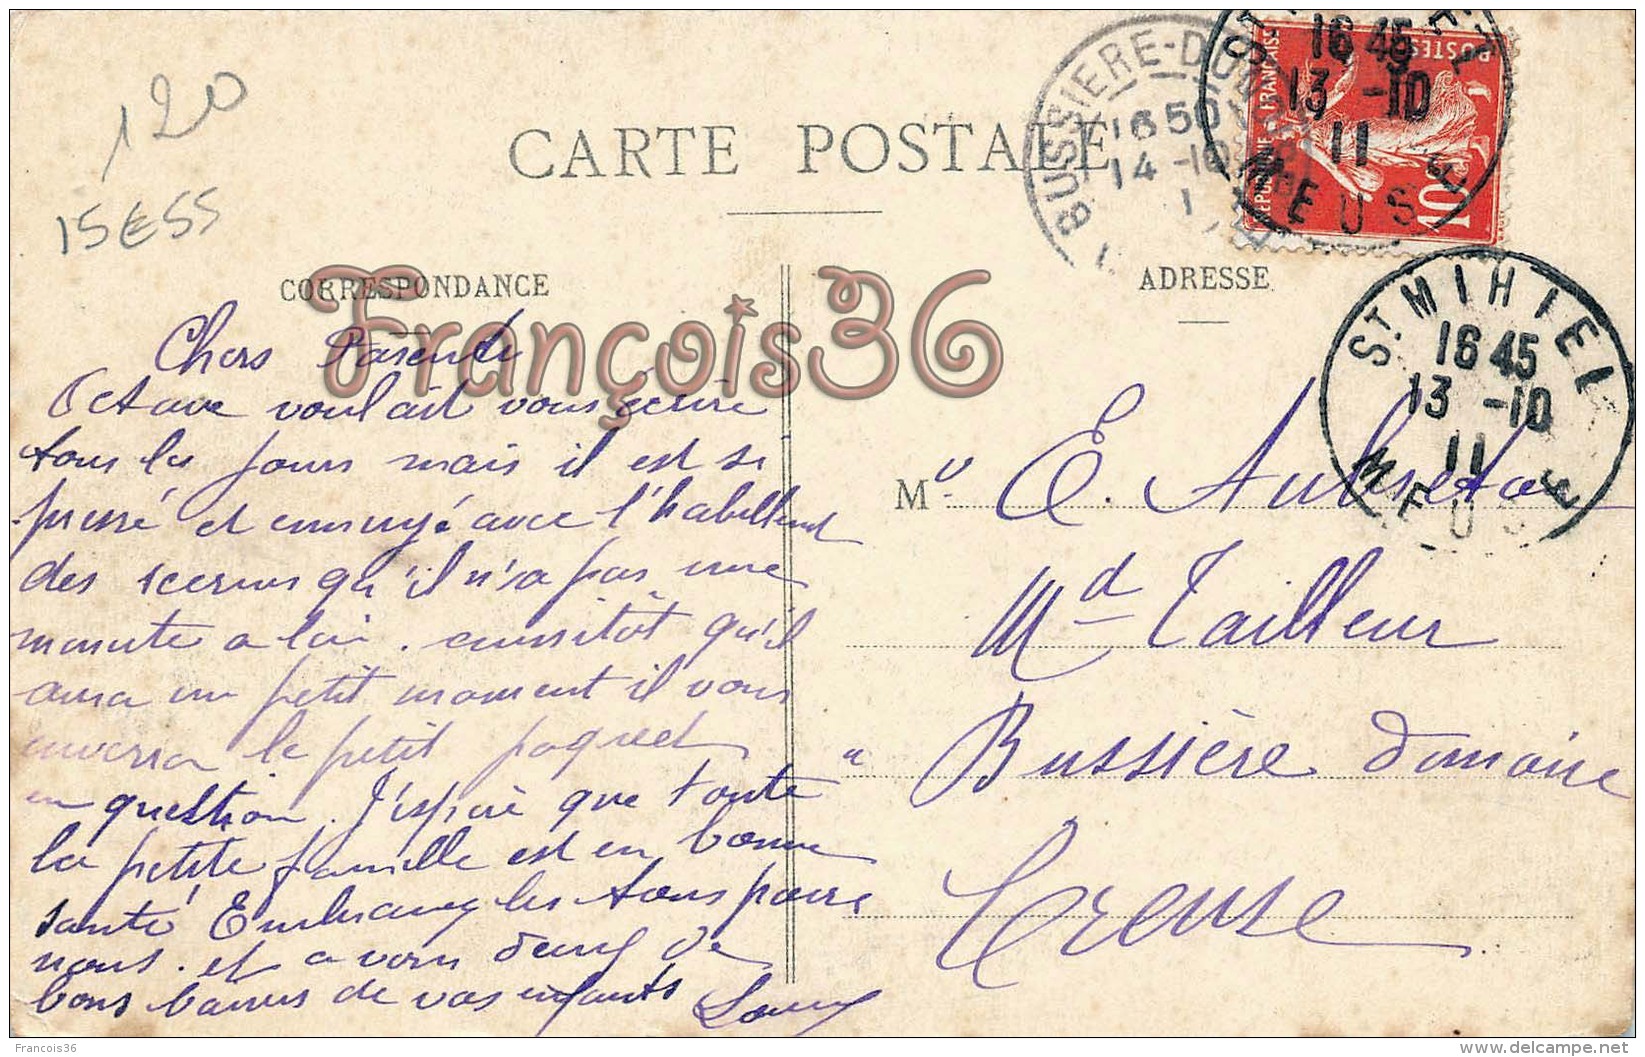 120
15E55
CARTE POSTALE
BUSSIERE-DUN
16 50
14 -10
REPUBLIQUE FRANÇAISE
POSTES
10
16 45
13 -10
11
MEUSE
CORRESPONDANCE
ADRESSE
ST MIHIEL
16 45
13 -10
11
MEUSE
François36
Chers Parents
Octave voulait vous écrire
tous les jours mais il est si
pressé et ennuyé avec l'habillement
des reservis qu'il n'a pas une
minute a lui. aussitôt qu'il
aura un petit moment il vous
enverra le petit paquet
en question. J'espère que toute
la petite famille est en bonne
santé Embrassez les tous pour
nous. et a vous deux de
bons baisers de vos enfants
Mr E.
Md Tailleur
a Bussière dunoise
Creuse
Francois36
delcampe.net